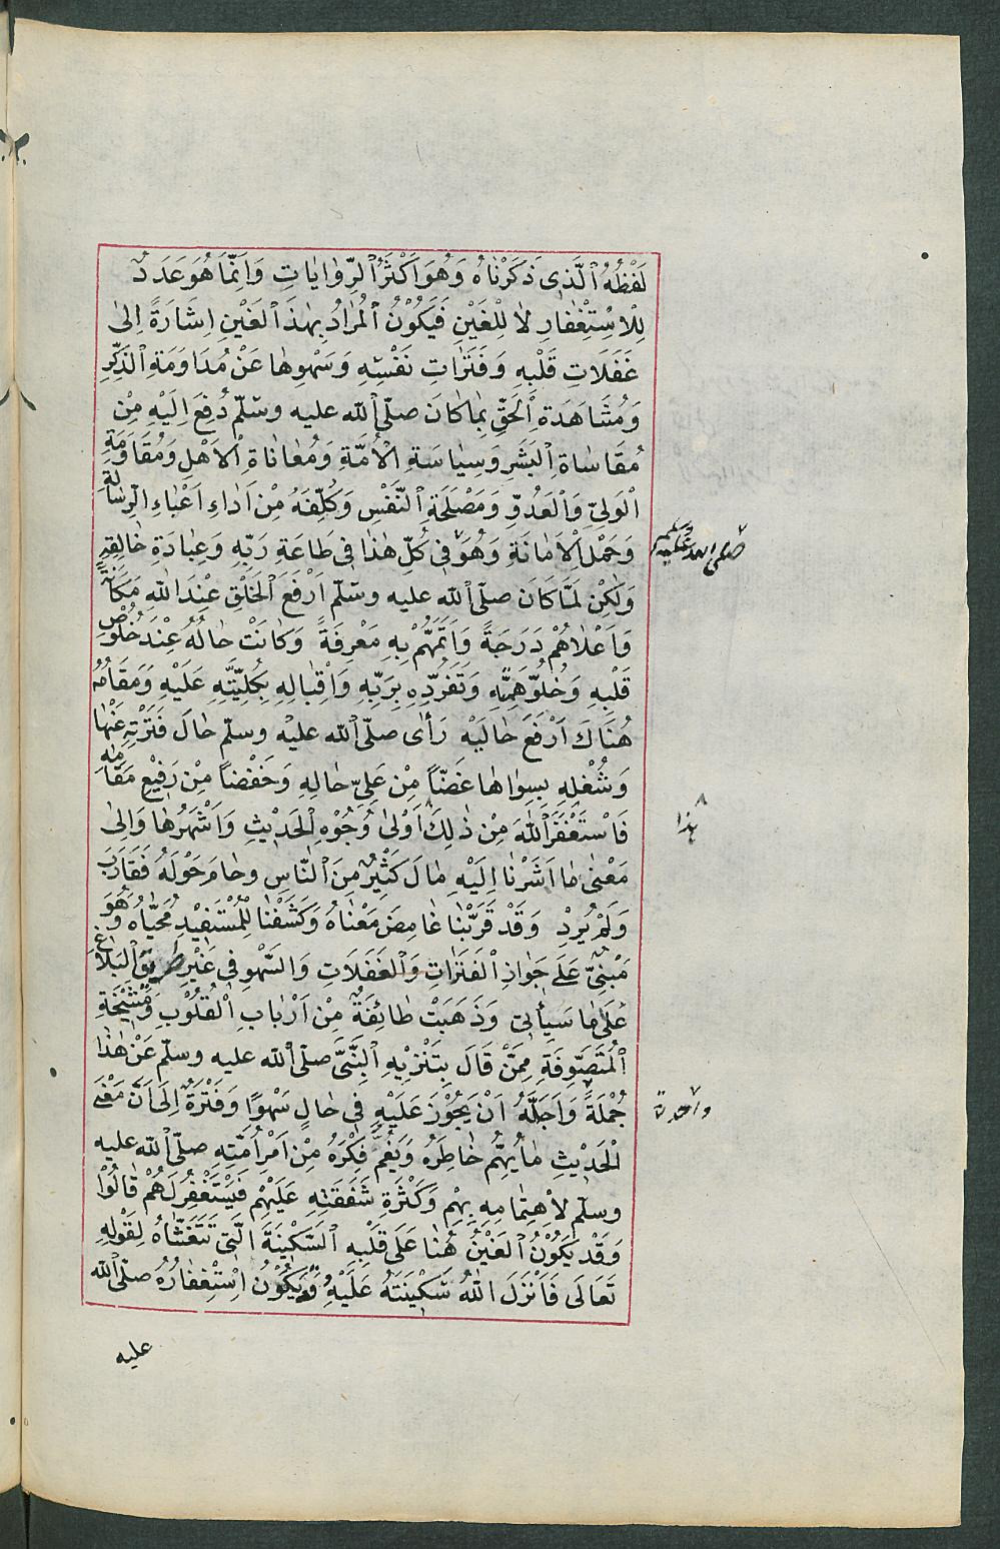 لَفْظُهُ الَّذِى ذَكَرْنَاهُ وَهُوَ اَكْثَرُ الرِّوَايَاتِ وَاِنَّمَا هُوَ عَدَدٌ
لِلْاِسْتِغْفَارِ لَا لِلْغَيْنِ فَيَكُوْنُ الْمُرَادُ بِهٰذَا الْغَيْنِ اِشَارَةً اِلىٰ
غَفَلَاتِ قَلْبِهِ وَفَتَرَاتِ نَفْسِهِ وَسَهْوِهَا عَنْ مُدَاوَمَةِ الذِّكْرِ
وَمُشَاهَدَةِ الْحَقِّ بِمَا كَانَ صلّى الله عليه وسلّم دُفِعَ اِلَيْهِ مِنْ
مُقَاسَاةِ الْبَشَرِ وَسِيَاسَةِ الْاُمَّةِ وَمُعَانَاةِ الْاَهْلِ وَمُقَاوَمَةِ
الْوَلِىِّ وَالْعَدُوِّ وَمَصْلَحَةِ النَّفْسِ وَكُلِّفَهُ مِنْ اَدَاءِ اَعْبَاءِ الرِّسَالَةِ
وَحَمْلِ الْاَمَانَةِ وَهُوَ فِى كُلِّ هٰذَا فِى طَاعَةِ رَبِّهِ وَعِبَادَةِ خَالِقِهِ
صلى الله عليه وسلم
وَلٰكِنْ لَمَّا كَانَ صلّى الله عليه وسلّم اَرْفَعَ الْخَلْقِ عِنْدَ اللهِ مَكَانَةً
وَاَعْلَاهُمْ دَرَجَةً وَاَتَمَّهُمْ بِهِ مَعْرِفَةً وَكَانَتْ حَالُهُ عِنْدَ خُلُوْصِ
قَلْبِهِ وَخُلُوِّ هَمِّهِ وَتَفَرُّدِهِ بِرَبِّهِ وَاِقْبَالِهِ بِكُلِّيَّتِهِ عَلَيْهِ وَمَقَامُهُ
هُنَاكَ اَرْفَعَ حَالَيْهِ رَأٰى صلّى الله عليه وسلم حَالَ فَتْرَتِهِ عَنْهَا
وَشُغْلِهِ بِسِوَاهَا غَضًّا مِنْ عَلِىِّ حَالِهِ وَخَفْضًا مِنْ رَفِيْعِ مَقَامِهِ
فَاسْتَغْفَرَ اللهَ مِنْ ذٰلِكَ اَوْلىٰ وُجُوْهِ الْحَدِيْثِ وَاَشْهَرُهَا وَاِلىٰ
هذا
مَعْنىٰ مَا اَشَرْنَا اِلَيْهِ مَالَ كَثِيْرٌ مِنَ النَّاسِ وحَامَ حَوْلَهُ فَقَارَبَ
وَلَمْ يَرِدْ وَقَدْ قَرَّبْنَا غَامِضَ مَعْنَاهُ وَكَشَفْنَا لِلْمُسْتَفِيْدِ مُحَيَّاهُ وَهُوَ
مَبْنِىٌّ عَلَى جَوَازِ الْفَتَرَاتِ وَالْغَفَلَاتِ وَالسَّهْوِ فِى غَيْرِ طَرِيْقِ الْبَلَاغِ
عَلَى مَا سَيَأْتِى وَذَهَبَتْ طَائِفَةٌ مِنْ اَرْبَابِ الْقُلُوْبِ وَمَشْيَخَةِ
الْمُتَصَوِّفَةِ مِمَّنْ قَالَ بِتَنْزِيْهِ النَّبِىِّ صلّى الله عليه وسلّم عَنْ هٰذَا
جُمْلَةً وَاَجَلَّهُ اَنْ يَجُوْزَ عَلَيْهِ فِى حَالٍ سَهْوًا وَفَتْرَةٌ اِلَى اَنَّ مَعْنَى
الْحَدِيْثِ مَا يُهِمُّ خَاطِرَهُ وَيَغُمُّ فِكْرَهُ مِنْ اَمْرِ اُمَّتِهِ صلّى الله عليه
وسلّم لِاهْتِمَامِهِ بِهِمْ وَكَثْرَةِ شَفَقَتِهِ عَلَيْهِمْ فَيَسْتَغْفِرُ لَهُمْ قَالُوْا
وَقَدْ يَكُوْنُ الْغَيْنُ هُنَا عَلَى قَلْبِهِ السَّكِيْنَةَ الَّتِى تَتَغَشَّاهُ لِقَوْلِهِ
تَعَالَى فَاَنْزَلَ اللهُ سَكِيْنَتَهُ عَلَيْهِ وَيَكُوْنُ اِسْتِغْفَارُهُ صلّى الله
عليه